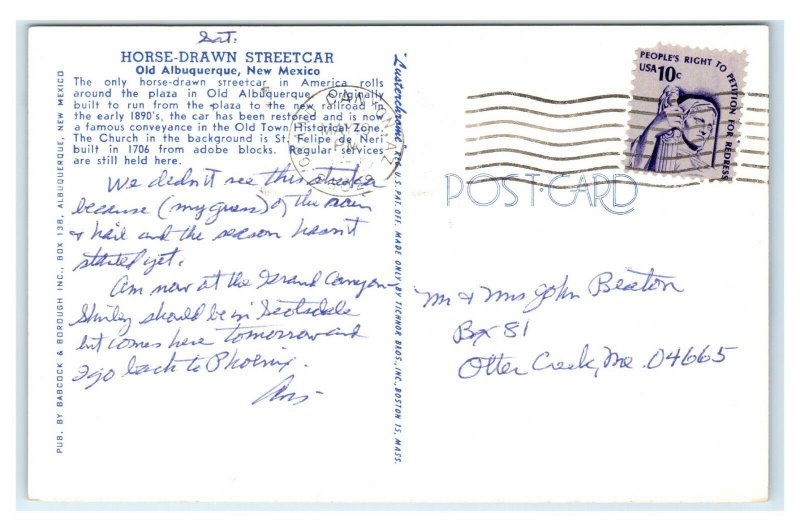 Sat.
HORSE-DRAWN STREETCAR
Old Albuquerque, New Mexico
The only horse-drawn streetcar in America rolls
around the plaza in Old Albuquerque. Originally
built to run from the plaza to the new railroad in
the early 1890's, the car has been restored and is now
a famous conveyance in the Old Town Historical Zone.
The Church in the background is St. Felipe de Neri
built in 1706 from adobe blocks. Regular services
are still held here.
We didn't see this
because (my guess) of the rain
& hail and the season hasn't
started yet.
Am now at the Grand Canyon-
Shirley should be in Scotsdale
but comes here tomorrow and
I go back to Phoenix.
PUB. BY BABCOCK & BOROUGH INC., BOX 138, ALBUQUERQUE, NEW MEXICO
"Lusterchrome" REG. U.S. PAT. OFF. MADE ONLY BY TICHNOR BROS., INC., BOSTON 15, MASS.
GRAND CANYON, AZ
PEOPLE'S RIGHT TO PETITION FOR REDRESS
USA 10c
POST CARD
Mr & Mrs John Beaton
Bx 81
Otter Creek, Me. 04665